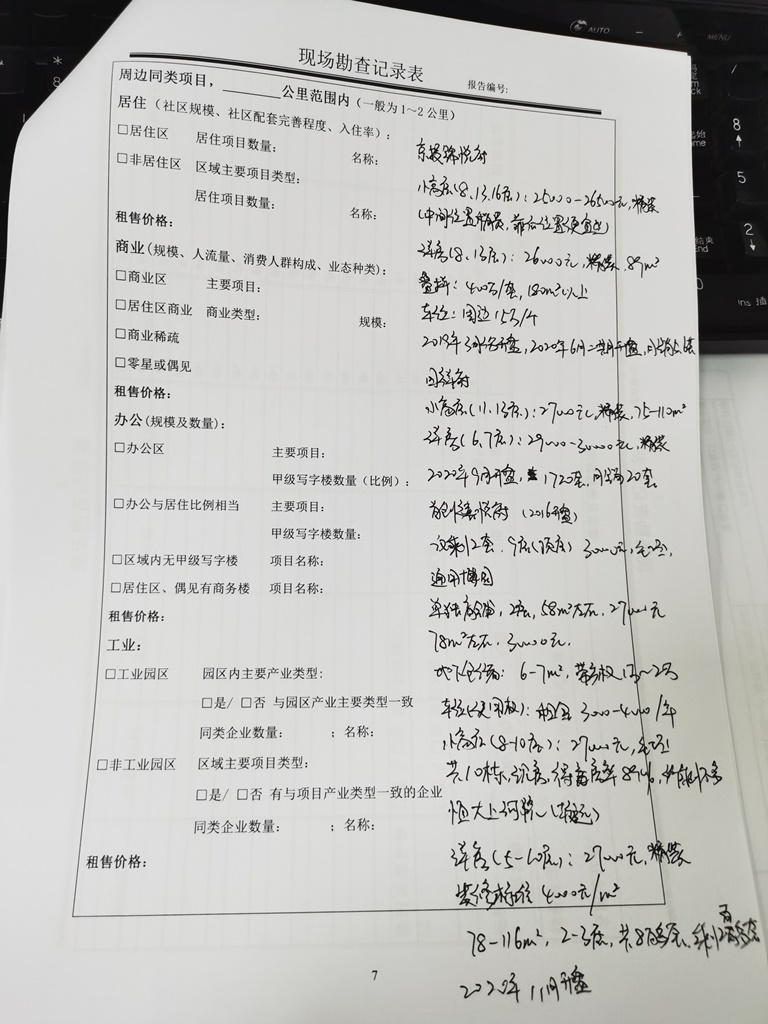 现场勘查记录表
报告编号:
周边同类项目，______公里范围内（一般为1～2公里）
居住（社区规模、社区配套完善程度、入住率）：
□居住区 居住项目数量: 名称:
□非居住区 区域主要项目类型:
居住项目数量: 名称:
租售价格:
商业(规模、人流量、消费人群构成、业态种类):
□商业区 主要项目:
□居住区商业 商业类型: 规模:
□商业稀疏
□零星或偶见
租售价格:
办公(规模及数量):
□办公区 主要项目:
甲级写字楼数量(比例):
□办公与居住比例相当 主要项目:
甲级写字楼数量:
□区域内无甲级写字楼 项目名称:
□居住区、偶见有商务楼 项目名称:
租售价格:
工业:
□工业园区 园区内主要产业类型:
□是/ □否 与园区产业主要类型一致
同类企业数量: ；名称:
□非工业园区 区域主要项目类型:
□是/ □否 有与项目产业类型一致的企业
同类企业数量: ；名称:
租售价格:
小高层(8、13、16层)：25000-26500元，精装
(中间位置 靠后位置便宜些)
洋房(8、13层)：26000元，精装，89m²
叠拼：400万/套，180m²以上
车位：周边15万/个
2020年6月
小高层(11、13层)：27000元，精装，75-110m²
洋房(6、7层)：29000-30000元，精装
2020年9月开盘， 1720套，月销20套
(2016开盘)
9层(顶层) 30000元，毛坯，
2层，58m²左右，27000元
78m²左右，30000元.
6-7m²，带产权 1万～2万
车位(使用权)：租金 3000-4000/年
小高层(8-10层)：27000元，毛坯
共10栋，
洋房(5-10层)：27000元，精装
装修标准 4000元/m²
78-116m²，2-3居，
2020年11月开盘
7